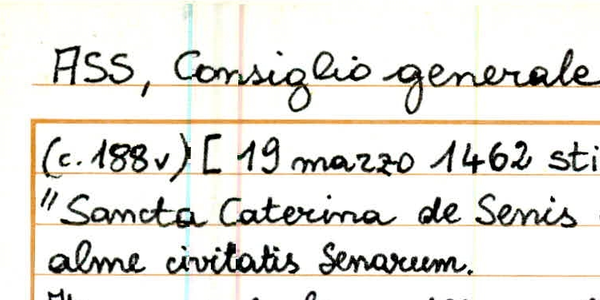 ASS, Consiglio generale
(c. 188v) [ 19 marzo 1462 sti
"Sancta Caterina de Senis
alme civitatis Senarum.